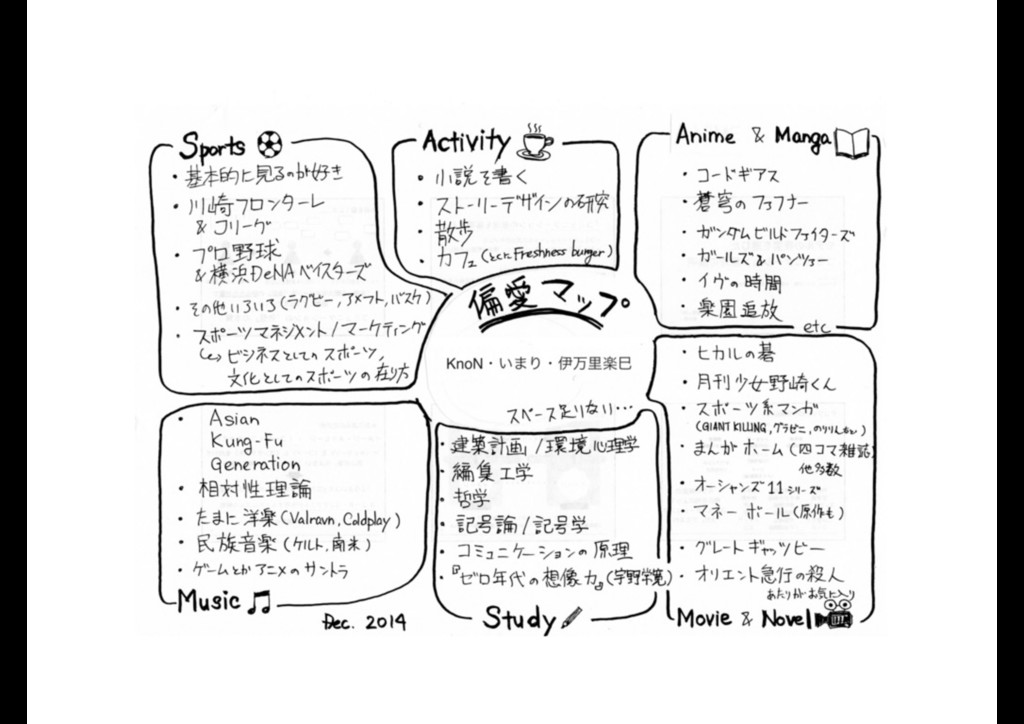 Sports
・基本的に見るのが好き
・川崎フロンターレ
& Jリーグ
・プロ野球
& 横浜DeNAベイスターズ
・その他いろいろ(ラグビー,アメフト,バスケ)
・スポーツマネジメント/マーケティング
ビジネスとしてのスポーツ,
文化としてのスポーツの在り方
Activity
・小説を書く
・ストーリーデザインの研究
・散歩
・カフェ(とくに Freshness burger)
Anime & Manga
・コードギアス
・蒼穹のファフナー
・ガンダムビルドファイターズ
・ガールズ&パンツァー
・イヴの時間
・楽園追放
etc
偏愛マップ
KnoN・いまり・伊万里楽巳
スペース足りない…
・ヒカルの碁
・月刊少女野崎くん
・スポーツ系マンガ
(GIANT KILLING, グラゼニ,
・まんがホーム(四コマ雑誌)
他多数
・オーシャンズ11シリーズ
・マネーボール(原作も)
・グレートギャツビー
・オリエント急行の殺人
あたりがお気に入り
Movie & Novel
・Asian
Kung-Fu
Generation
・相対性理論
・たまに洋楽(Valravn, Coldplay)
・民族音楽(ケルト,南米)
・ゲームとかアニメのサントラ
Music
Dec. 2014
・建築計画/環境心理学
・編集工学
・哲学
・記号論/記号学
・コミュニケーションの原理
・『ゼロ年代の想像力』(宇野常寛)
Study